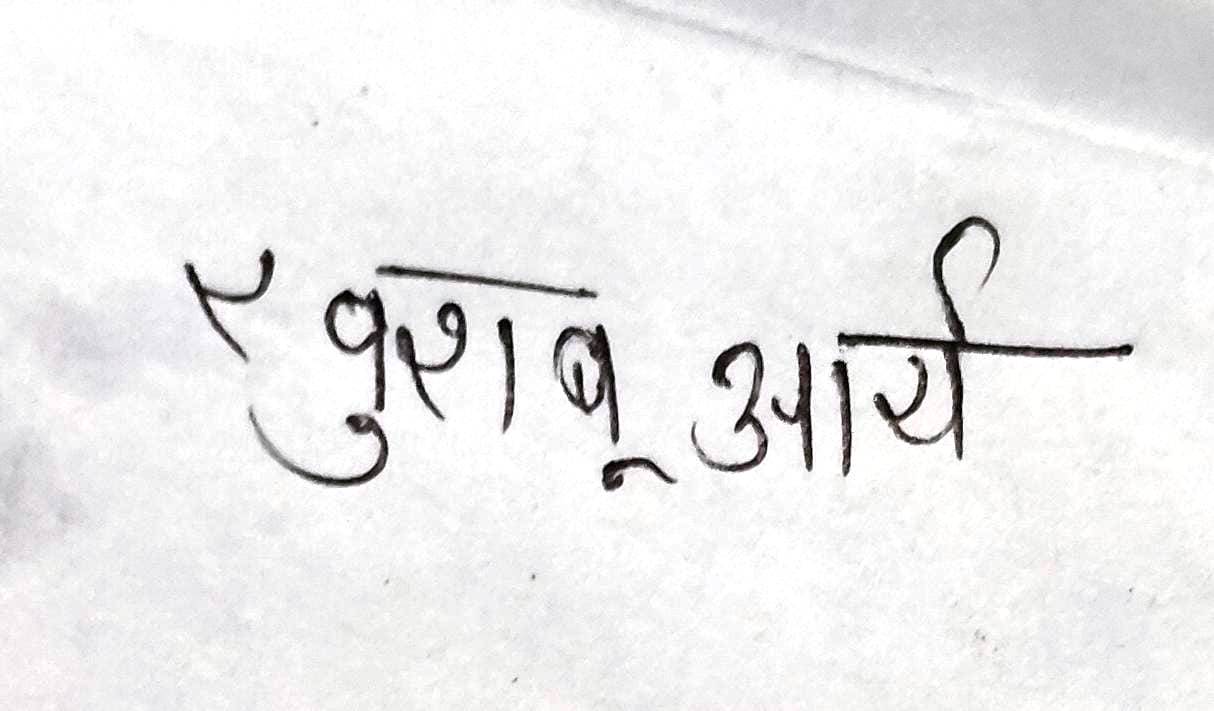 खुशबू आर्य